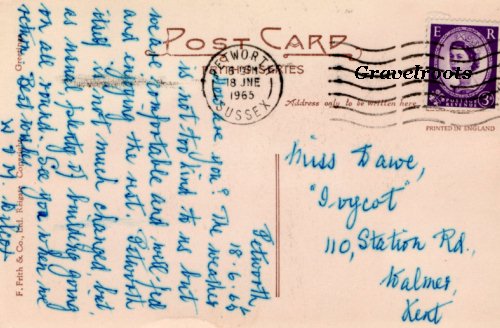 POST CARD
FRITH'S SERIES
PETWORTH
PM
18 JNE
1965
SUSSEX
E R
3D
Gravelroots
Address only to be written here
PRINTED IN ENGLAND
Miss Dawe,
"Ivycot"
110, Station Rd.,
Walmer,
Kent
Petworth,
18.6.65
are you? The weather
not too kind to us but
we are comfortable and well-fed
and enjoying the rest. Petworth
itself is not much changed, but
as usual plenty of building going
on all round. See you when we
W & M.
F. Frith & Co., Ltd. Reigate. Copyright.